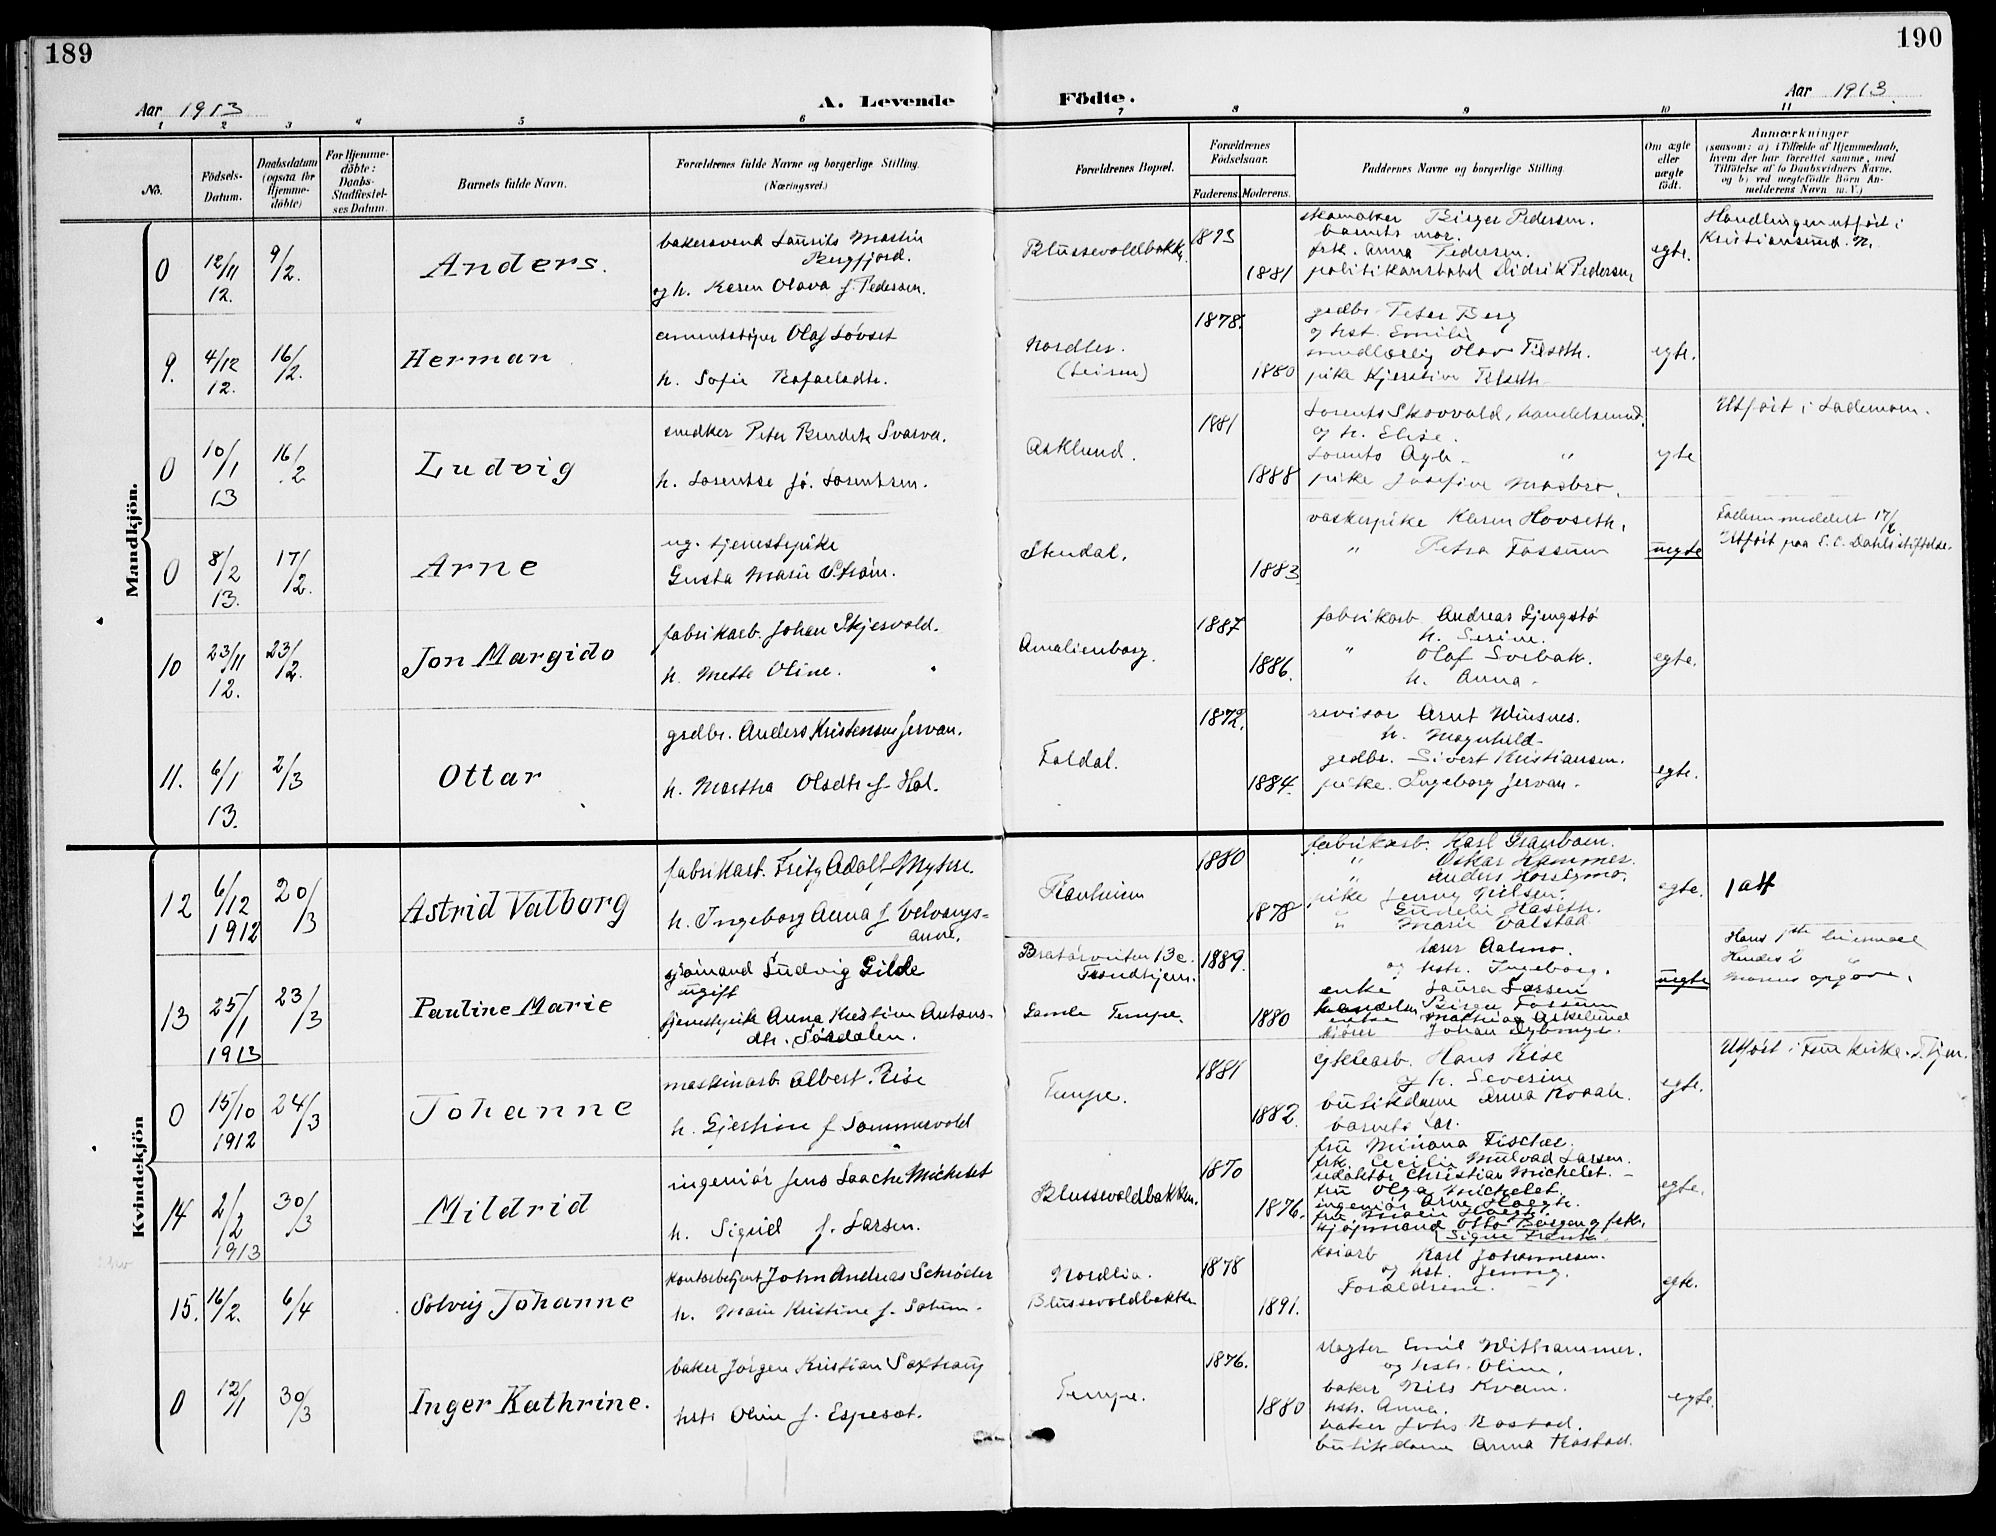 189
190
Aar 1913
A. Levende
Födte.
Aar 1913.
1 2 3 4 5 6 7 8 9 10 11
No.
Födsels-
Datum.
Daabsdatum
(ogsaa for
Hjemme-
döbte)
For Hjemme-
döbte:
Daabs-
Stadfæstel-
ses Datum.
Barnets fulde Navn.
Forældrenes fulde Navne og borgerlige Stilling.
(Næringsvei.)
Forældrenes Bopæl.
Forældrenes
Födselsaar.
Faderens.
Moderens.
Faddernes Navne og borgerlige Stilling.
Om ægte
eller
uægte
födt.
Anmærkninger
(saasom: a) i Tilfælde af Hjemmedaab,
hvem der har forrettet samme, med
Tilföielse af to Daabsvidners Navne,
og b) ved uægtefödte Börn An-
melderens Navn m. V.)
Mandkjön.
0
12/11
12.
9/2.
Anders.
bakersvend Laurits Martin
Bergfjord.
og h. Karen Olava f. Pedersen.
Blussevoldbakk.
1893
1881
skomaker Birger Pedersen.
barnets mor.
frk. Anna Pedersen.
politikonstabel Didrik Pedersen,
egte.
Handlingen utført i
Kristiansund. N.
9.
4/12
12.
16/2.
Herman
cementstøper Olaf Løvset
h. Sofie Rafaelsdtr.
Nordlys.
(Leiren)
1878.
1880
grdbr. Peter Berg
og hst. Emilie
Olav Tilseth.
pike Kjerstine Tilseth
egte.
0
10/1
13
16/2
Ludvig
snedker Peter Benedik Svarva.
h. Lorentse f. Lorentsen.
Asklund.
1881
1888
Lorents Skovvold, handelsmand.
og h. Elise.
Lorents Agle "
pike Josefine Mosbro.
egte
Utført i Lademoen.
0
8/2
13.
17/2.
Arne
ug. tjenestepike
Gusta Marie Strøm.
Stendal.
1883
vaskerpike Karen Hovseth,
" Petra Fossum
uegte
Faderen meddelt 17/2
Utført paa E. C. Dahls stiftelse.
10
23/11
12.
23/2.
Jon Margido
fabrikarb. Johan Skjesvold.
h. Mette Oline.
Amalienborg.
1887
1886.
fabrikarb. Andreas Gjengstø
h. Serine.
" Olaf Svebak.
h. Anna.
egte.
11.
6/1
13.
2/3
Ottar
grdbr. Anders Kristensen Jervan.
h. Martha Olsdtr f. Hol.
Foldal.
1872.
1884.
revisor Arnt Winsnes.
h. Magnhild
grdbr. Sivert Kristiansen.
pike. Ingeborg Jervan.
egte.
Kvindekjön
12
6/12
1912
20/3
Astrid Valborg
fabrikarb. Fritz Adolf Myhre.
h. Ingeborg Anna f. Velvangs-
aune.
Ranheim
1880
1878
fabrikarb. Karl Granbom.
" Oskar Hammer.
" Anders
pike Jenny Nilsen.
" Gunelie Haseth.
" Marie Valstad
egte.
1 att
13
25/1
1913
23/3
Pauline Marie
sjømand Ludvig Gilde
ugift
tjenestepike Anna Kristine Antons-
dtr. Sørdalen.
Bratørveiten 13c.
Trondhjem.
Gamle Tempe.
1889.
1880
lærer Aalmo.
og hstr. Ingeborg.
enke Laura Larsen
Birger Fossum
enke Mathea Askelund
kjører Johan Lybmyr.
uegte
Hans 1ste leiermaal
Hendes 2 "
Morens opgave.
0
15/10
1912
24/3
Johanne
maskinarb. Albert. Rise
h. Gjertine f. Sommervold
Tempe.
1881
1882.
cyklearb. Hans Rise
og h. Severine
butikdame Anna Rosah.
barnets far.
egte.
Utført i Frue kirke. T.hjem.
14
2/2
1913
30/3
Mildrid
ingeniør Jens Isaachs Michelet
h. Sigrid f. Larsen.
Blussevoldbakken.
1870
1876.
fru Minona Fischer.
frk. Cecilie Mulvad Larsen.
redaktør Christian Michelet.
fru Olga Michelet.
ingeniør Arne Hoegh.
fru Marie Hoegh.
kjøpmand Otto Borgen og frk.
Signe Frank
egte.
15.
16/2.
6/4
Solveig Johanne
kontorbetjent John Andreas Schrøder
h. Marie Kristine f. Solum.
Nordlia.
Blussevoldbakken
1878
1891.
koiarb Karl Johannesen.
og hst. Jenny.
Forældrene.
egte.
0
12/1
30/3
Inger Kathrine.
baker Jørgen Kristian Saxhaug
hstr Oline f. Espeset.
Tempe.
1876.
1880
slagter Emil Withammer.
og hstr. Oline.
baker Nils Kvam.
hstr. Anna.
baker Johs Rostad.
butikdame Anna Rostad.
egte.